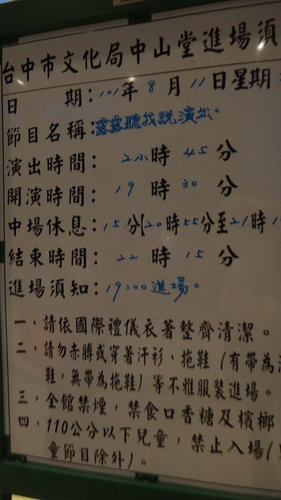 台中市文化局中山堂進場須
日 期：101年8月11日星期
節目名稱：露露聽我說演出。
演出時間：2小時45分
開演時間：19時30分
中場休息：15分(20時55分至21時1
結束時間：22時15分
進場須知：19:00進場。
一、請依國際禮儀衣著整齊清潔。
二、請勿赤膊或穿著汗衫、拖鞋（有帶為涼
鞋，無帶為拖鞋）等不雅服裝進場。
三、全館禁煙，禁食口香糖及檳榔
四、110公分以下兒童，禁止入場（
童節目除外）。